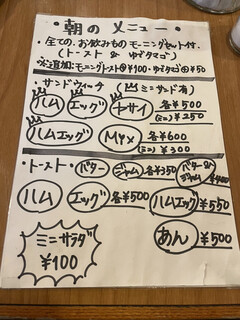 ・朝のメニュー・
・全ての、お飲みもの モーニングセット付.
(トースト & ゆでタマゴ)
※追加:モーニングトースト㊤¥100・ゆでタマゴ㊤¥50
・サンドウィッチ (ミニサンド有)
ハム エッグ ヤサイ 各¥500
(ミニ)¥250
ハムエッグ Mix 各¥600
(ミニ)¥300
・トースト・ バター ジャム 各¥350 バター& ジャム ¥400
ハム エッグ 各¥500 ハムエッグ ¥550
あん ¥500
ミニサラダ
¥100